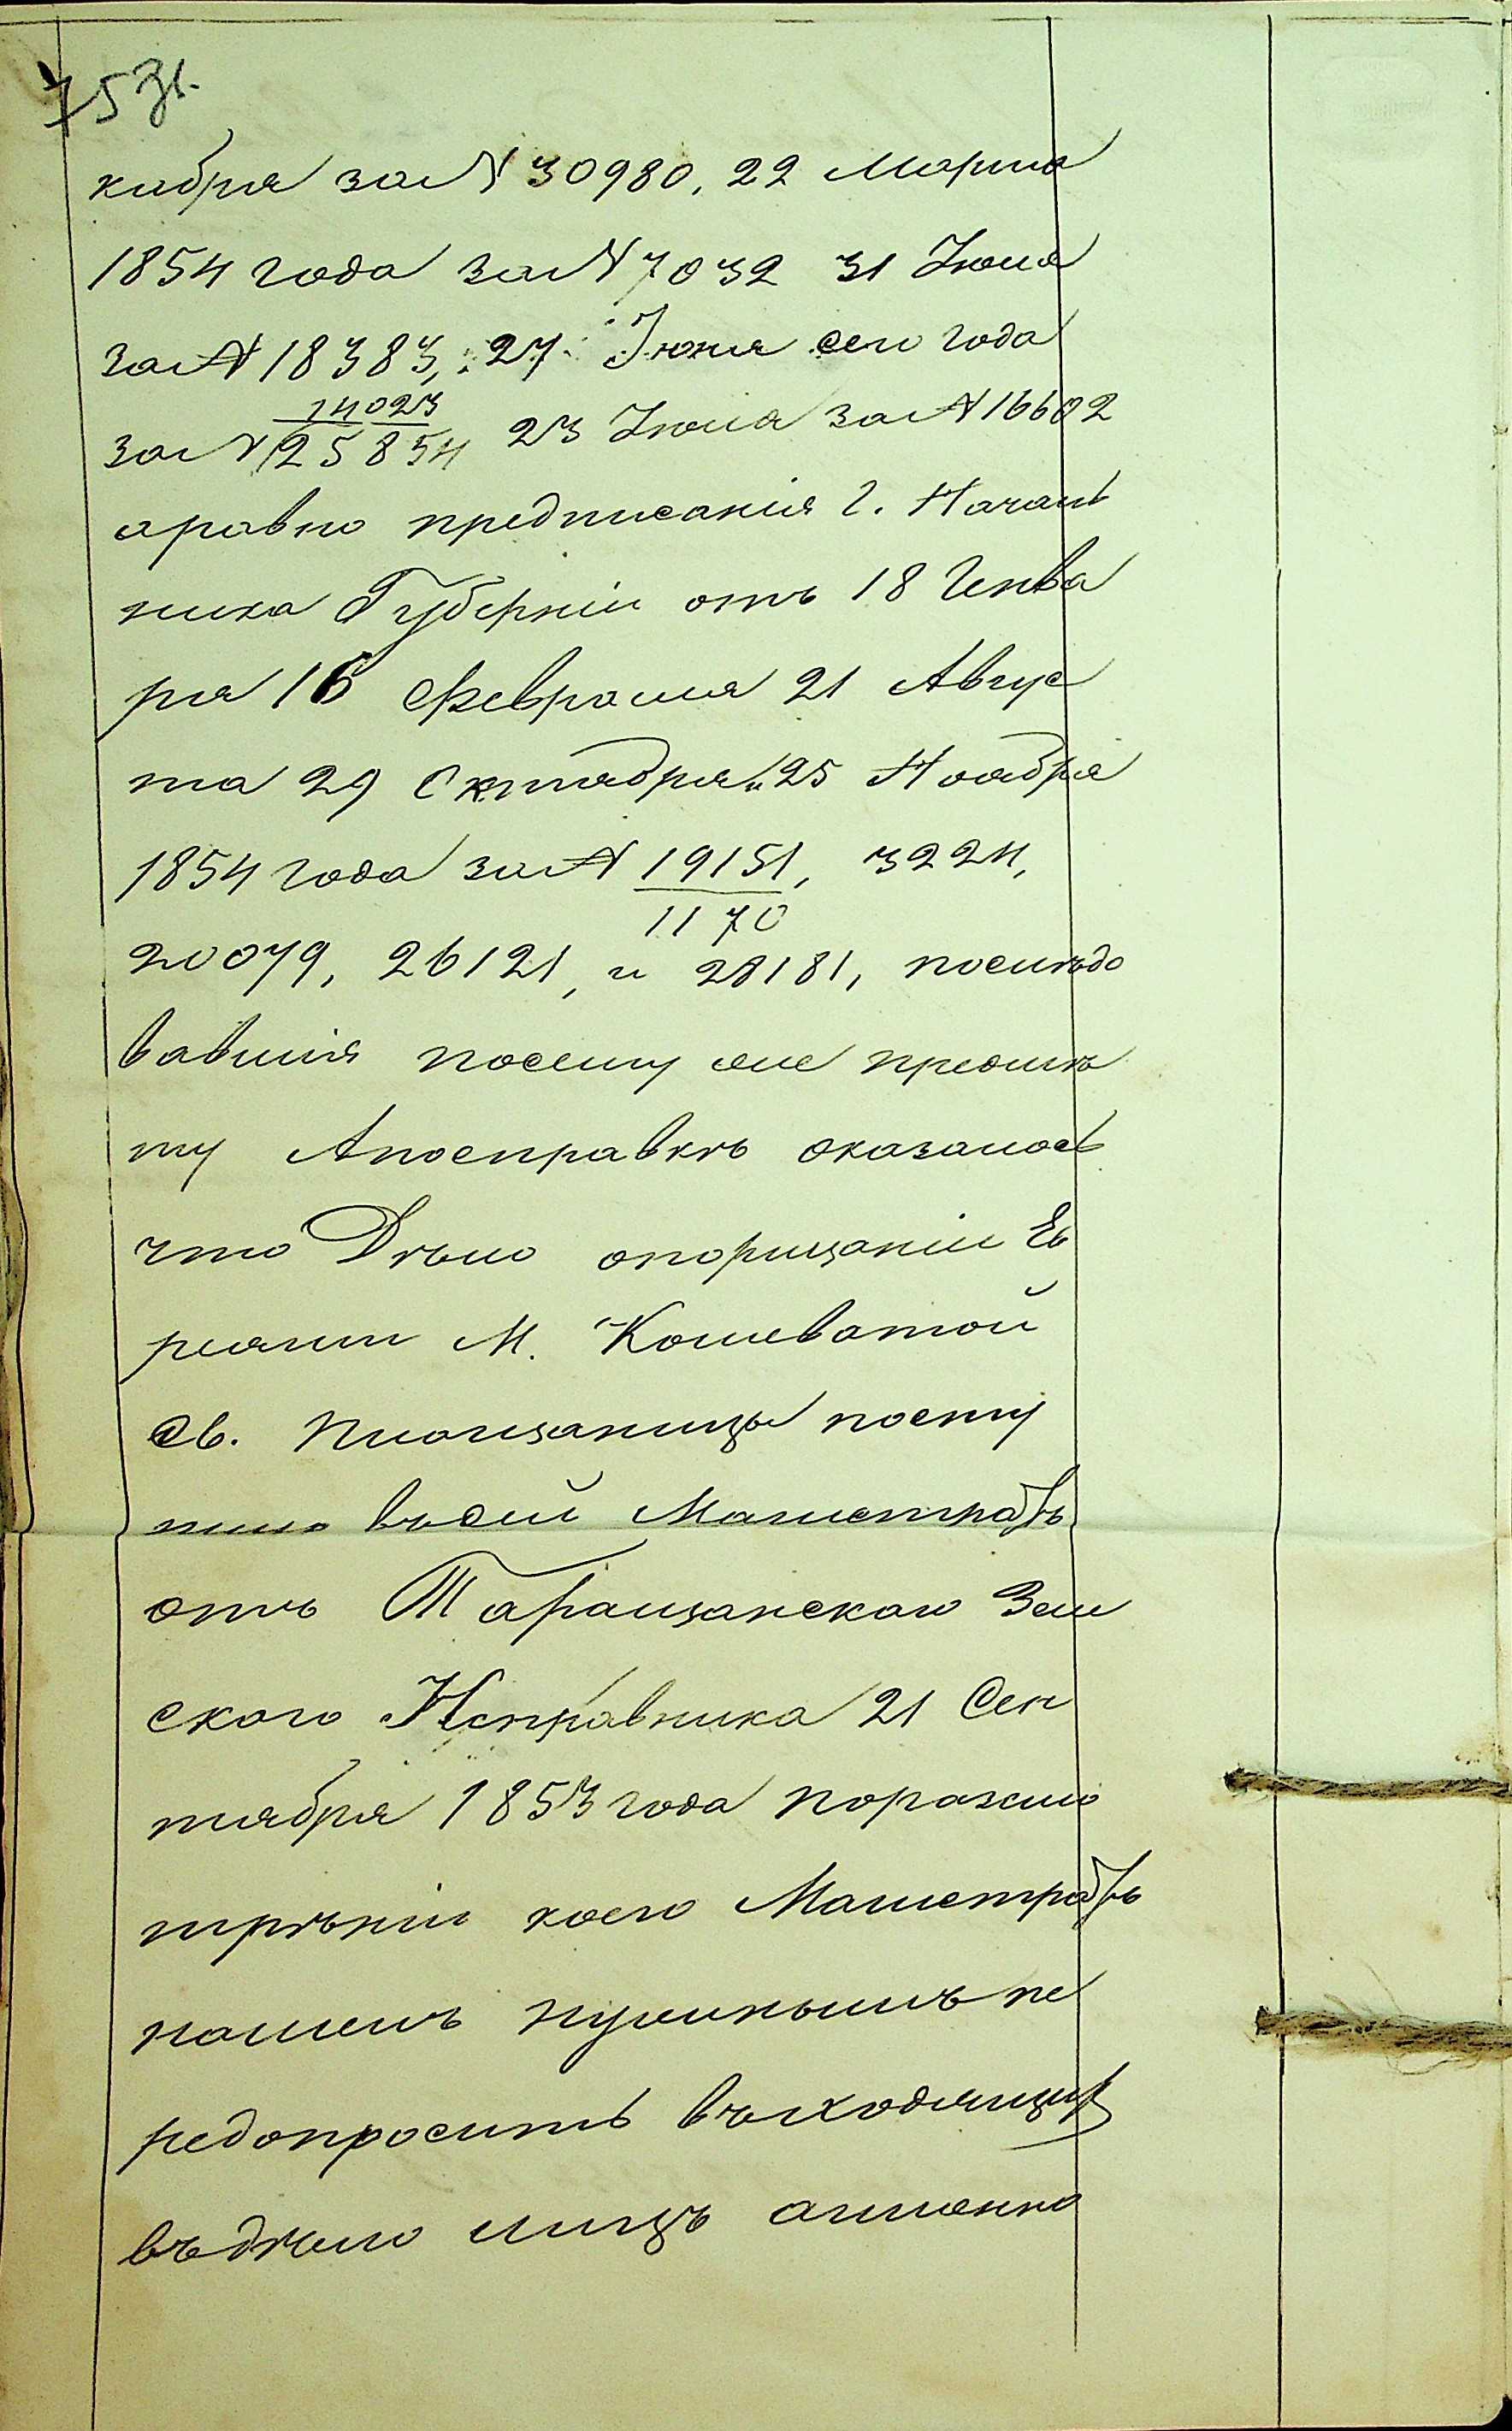 75 зв.
кабря за № 30980, 22 Марта
1854 года за № 7032 31 Июля
за № 18383, 27 Июня сего года
за № 14023/25854 23 Июля за № 16602
аравно предписанія Г. Началь
ника Губерніи отъ 18 Генва
ря 16 Февраля 21 Авгус
та 29 Октября и 25 Ноября
1854 года за № 19151/1170, 3224,
20079, 26121, и 28181, послѣдо
вавшія посему же предмѣ
ту Апосправкѣ оказалось
что Дѣло опорицаніи Ев
реями М. Кошеватой
Св. Плащаницы посту
пило въсей Магистратъ
отъ Таращанскаго Зем
скаго Исправника 21 Сен
тября 1853 года поразсмо
трѣніи коего Магистратъ
нашелъ нужнымъ пе
редопросить въходящихъ
въдѣло лицъ аименно